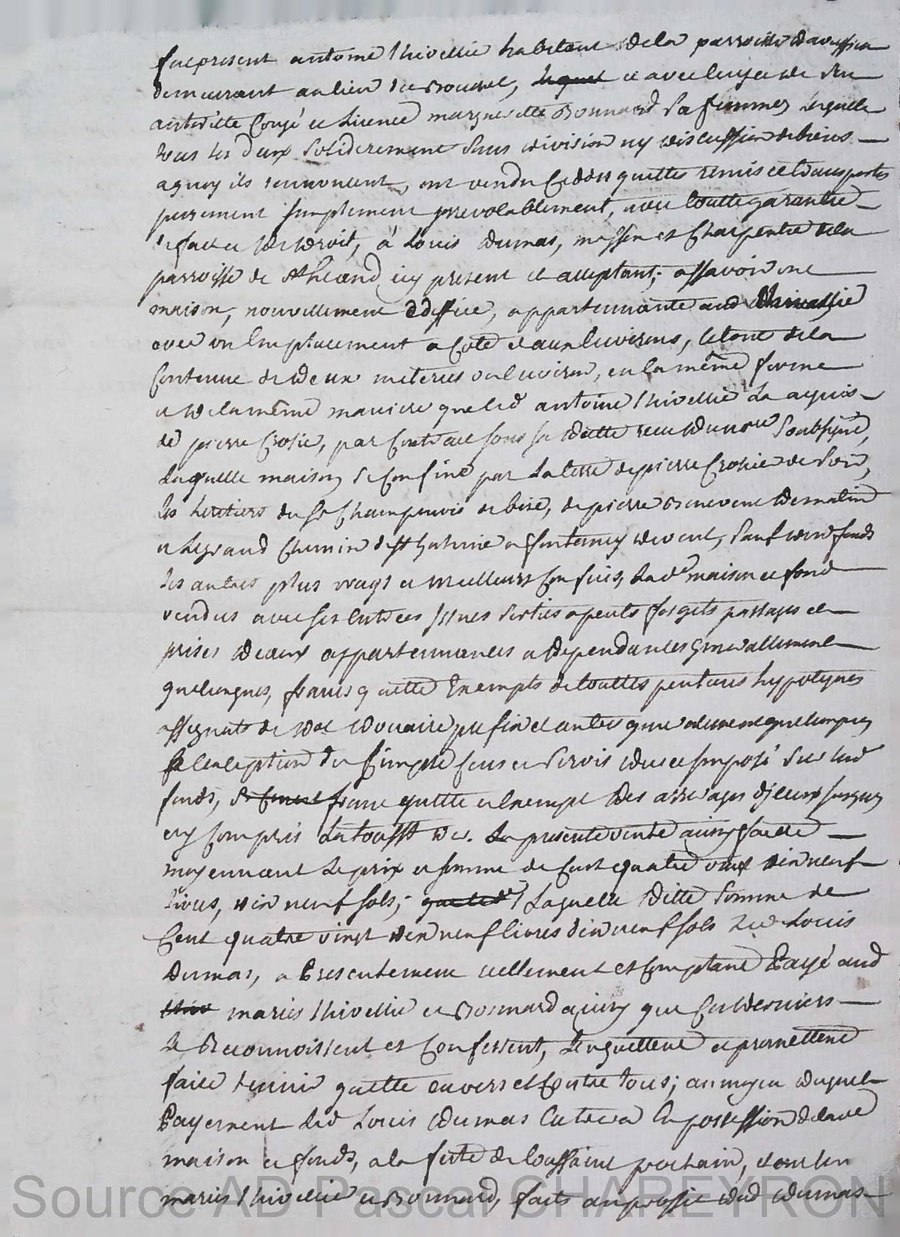 fut present antoine Thivellie habitant de la parroisse
demeurant au lieu de Bouchet, lequel et avec luy de son
autoritte Congé et Licence margueritte Bonnard Sa femme, lesquels
tous les deux Soliderement Sans division ny discussion de biens
a quoy ils renoncent, ont vendu Ceddé quitté remis et transporté
purement simplement irrevocablement, avec toutte garantie
de fait et de droit, à Louis Dumas, masson et Charpentié de la
parroisse de icy present et acceptant; assavoir une
maison, nouvellement ediffiée, appartenante aud Thivellie
avec un Emplacement a Coté et aux Environs, le tout de la
Contenue de deux meterées ou Environ, en la même forme
et de la même maniere que led antoine Thivellie La aquis
de pierre Crosie, par Contract sous sa datte receu du nore Soubsigné,
Laquelle maison Se Confine par La terre de pierre Crosie de Soir,
Les heritiers du Sr de bise, de pierre Benevent de matin
et Le grand Chemin de St a de vent, Sauf dud fonds
Les autres plus vrays et meilleurs Confins, Lad maison et fond
vendus avec ses Entrées Issues Sorties passages et
prises deaux appartenances et Dependances Generallement
quelconques, francs quitte Exempts de touttes pentions hypoteques
assignats de dot Douaire et autres generalement quelconques
a Lexception du Simple Cens et Servis dus et Imposé Sur led
fonds, franc quitte et Exempt des arrerages Diceux Jusques
et y Compris La toussts der. La presente vente ainsy faitte
moyennant Le prix et somme de Cent quatre vingt dix neuf
Livres, dix neuf sols; Laquelle Ditte Somme de
Cent quatre vingt dix neuf Livres dix neuf sols led Louis
Dumas, a Presentement reellement et Comptant Payé aud
mariés Thivellie et Bonnard ainsy que Ces derniers
Le Reconnoissent et Confessent, Len quittent et promettent
faire tenir quitte envers et Contre tous; au moyen duquel
Payement led Louis Dumas Entrera En possession de lad
maison et fonds, a la fete de Toussaint prochain, dont les
mariés Thivellie et Bonnard, faits au proffit dud Dumas
Source AD Pascal CHAREYRON